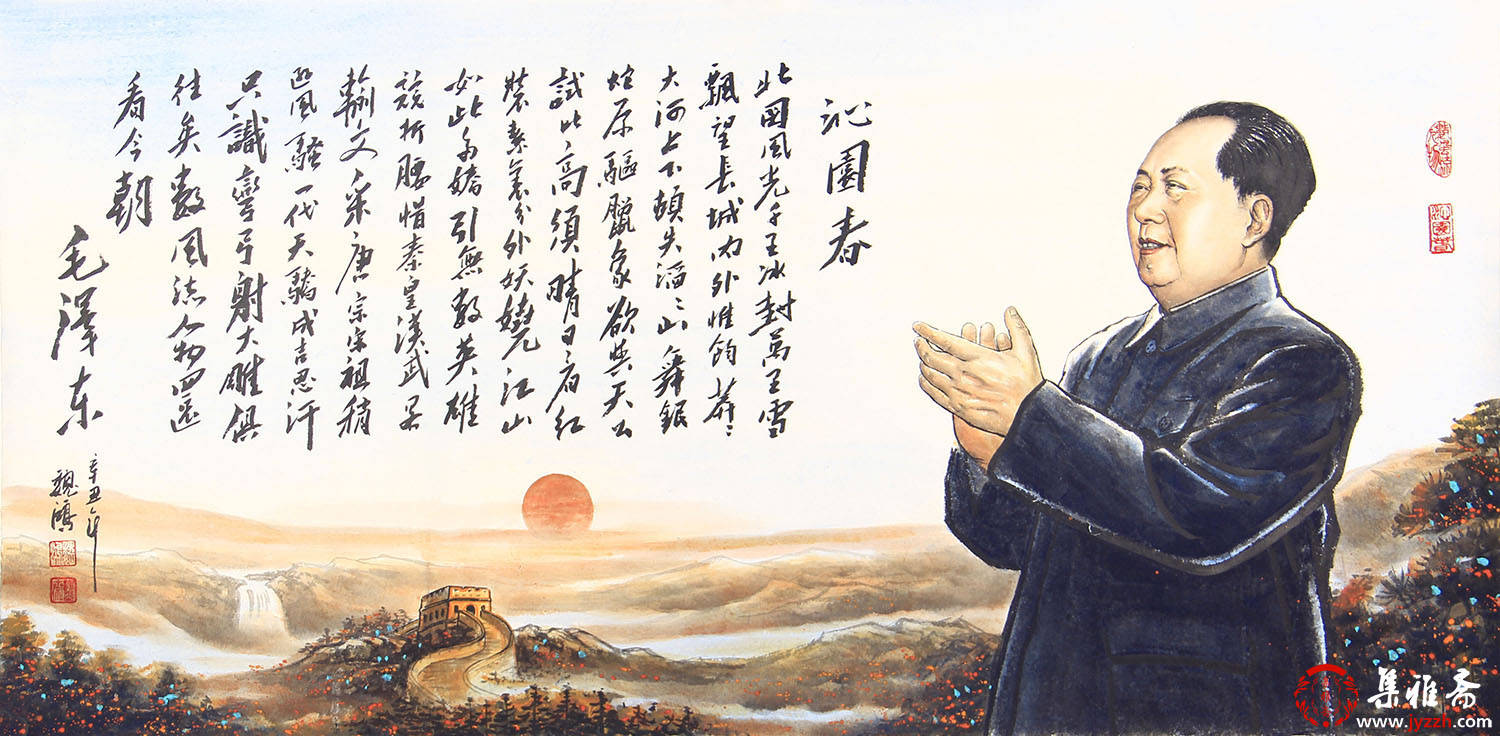 沁園春
北國風光千里冰封萬里雪
飄望長城內外惟餘莽〻
大河上下頓失滔〻山舞銀
蛇原驅臘象欲與天公
試比高須晴日看紅
裝素裹分外妖嬈江山
如此多嬌引無數英雄
競折腰惜秦皇漢武略
輸文采唐宗宋祖稍
遜風騷一代天驕成吉思汗
只識彎弓射大雕俱
往矣數風流人物還
看今朝
毛澤东
辛丑年
魏鴻
集雅斋
www.jyzzh.com